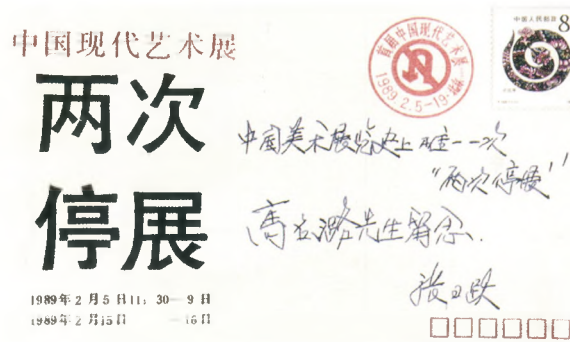 中国现代艺术展
两次
停展
1989年2月5日11:30—9日
1989年2月15日—16日
首届中国现代艺术展
1989.2.5-19·
中国人民邮政
8
中国美术展览史上唯一一次
“两次停展”
高名潞先生留念.